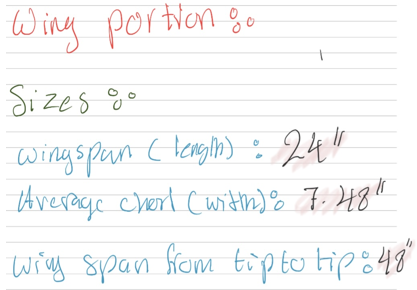 Wing portion :
Sizes :
wingspan (length) : 24"
Average chord (width): 7.48"
wing span from tip to tip: 48"